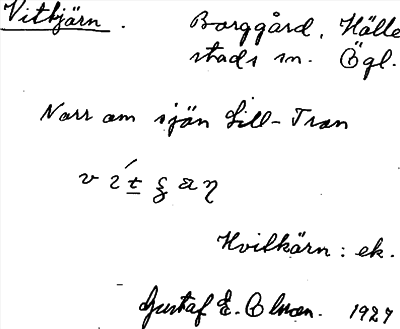 Vitkjärn. Borggård, Hälle
stads sn. Ögl.
Norr om sjön Lill-Tron
Hvitkärn: ek.
Gustaf E. Olson. 1927